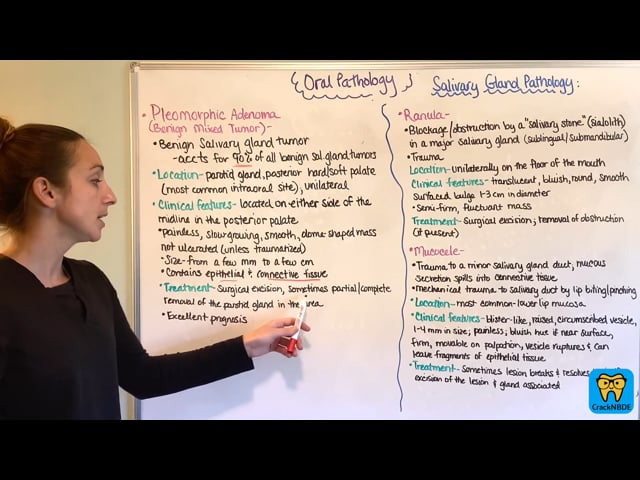 { Oral Pathology } Salivary Gland Pathology:
• Pleomorphic Adenoma
(Benign Mixed Tumor)-
• Benign Salivary gland tumor
- accts for 90% of all benign sal.gland tumors
• Location- parotid gland, posterior hard/soft palate
(most common intraoral site), unilateral
• Clinical features- located on either side of the
midline in the posterior palate
• Painless, slow growing, smooth, dome-shaped mass
not ulcerated (unless traumatized)
• Size- from a few mm to a few cm
• Contains epithelial & connective tissue
• Treatment- surgical excision, sometimes partial/complete
removal of the parotid gland in the area
• Excellent prognosis
• Ranula-
• Blockage/obstruction by a "salivary stone" (sialolith)
in a major salivary gland (sublingual/submandibular)
• Trauma
Location- unilaterally on the floor of the mouth
Clinical features- translucent, bluish, round, smooth
surfaced bulge 1-3 cm in diameter
• Semi-firm, fluctuant mass
Treatment- Surgical excision; removal of obstruction
(if present)
• Mucocele-
• Trauma to a minor salivary gland duct, mucous
secretion spills into connective tissue
• mechanical trauma to salivary duct by lip biting/pinching
• Location- most common- lower lip mucosa
• Clinical features- blister-like, raised, circumscribed vesicle,
1-4 mm in size; painless; bluish hue if near surface,
firm, movable on palpation, vesicle ruptures & can
leave fragments of epithelial tissue
• Treatment- Sometimes lesion breaks & resolves
excision of the lesion & gland associated
CrackNBDE